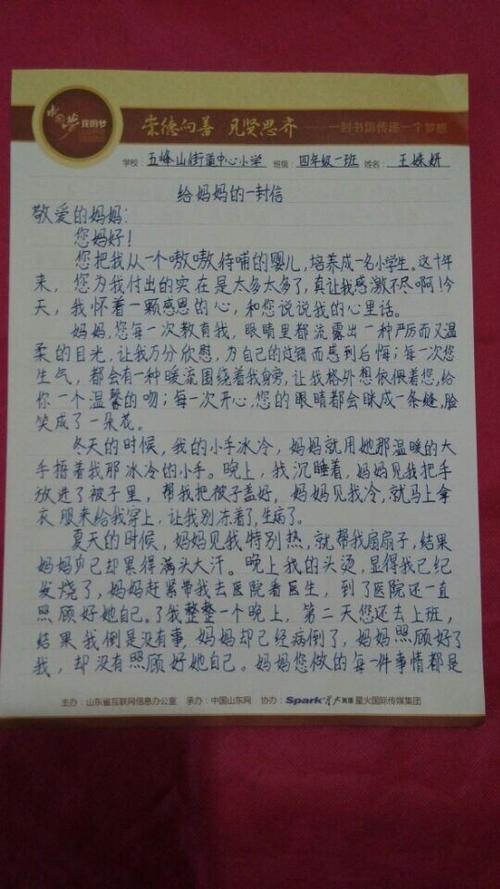 中国梦 我的梦
崇德向善 见贤思齐 —— 一封书信传递一个梦想
学校：五峰山街道中心小学 班级：四年级一班 姓名：王姝妍
给妈妈的一封信
敬爱的妈妈：
您妈好！
您把我从一个嗷嗷待哺的婴儿，培养成一名小学生。这十年
来，您为我付出的实在是太多太多了，真让我感激不尽啊！今
天，我怀着一颗感恩的心，和您说说我的心里话。
妈妈，您每一次教育我，眼睛里都流露出一种严厉而又温
柔的目光，让我万分欣慰，为自己的过错而感到后悔；每一次您
生气，都会有一种暖流围绕着我身旁，让我格外想依偎着您，给
你一个温馨的吻；每一次开心，您的眼睛都会眯成一条缝，脸
笑成了一朵花。
冬天的时候，我的小手冰冷，妈妈就用她那温暖的大
手捂着我那冰冷的小手。晚上，我沉睡着，妈妈见我把手
放进了被子里，帮我把被子盖好，妈妈见我冷，就马上拿
衣服来给我穿上，让我别冻着了，生病了。
夏天的时候，妈妈见我特别热，就帮我扇扇子，结果
妈妈自己却累得满头大汗。晚上我的头烫，显得我已纪
发烧了，妈妈赶紧带我去医院看医生，到了医院还一直
照顾好她自己。了我整整一个晚上，第二天您还去上班，
结果我倒是没有事，妈妈却已经病倒了，妈妈照顾好了
我，却没有照顾好她自己。妈妈您做的每一件事情都是
主办：山东省互联网信息办公室 承办：中国山东网 协办：Spark 星火英语 星火国际传媒集团